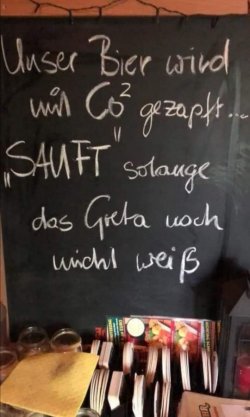 Unser Bier wird
mit Co² gezapft...
„SAUFT" solange
das Greta noch
nicht weiß